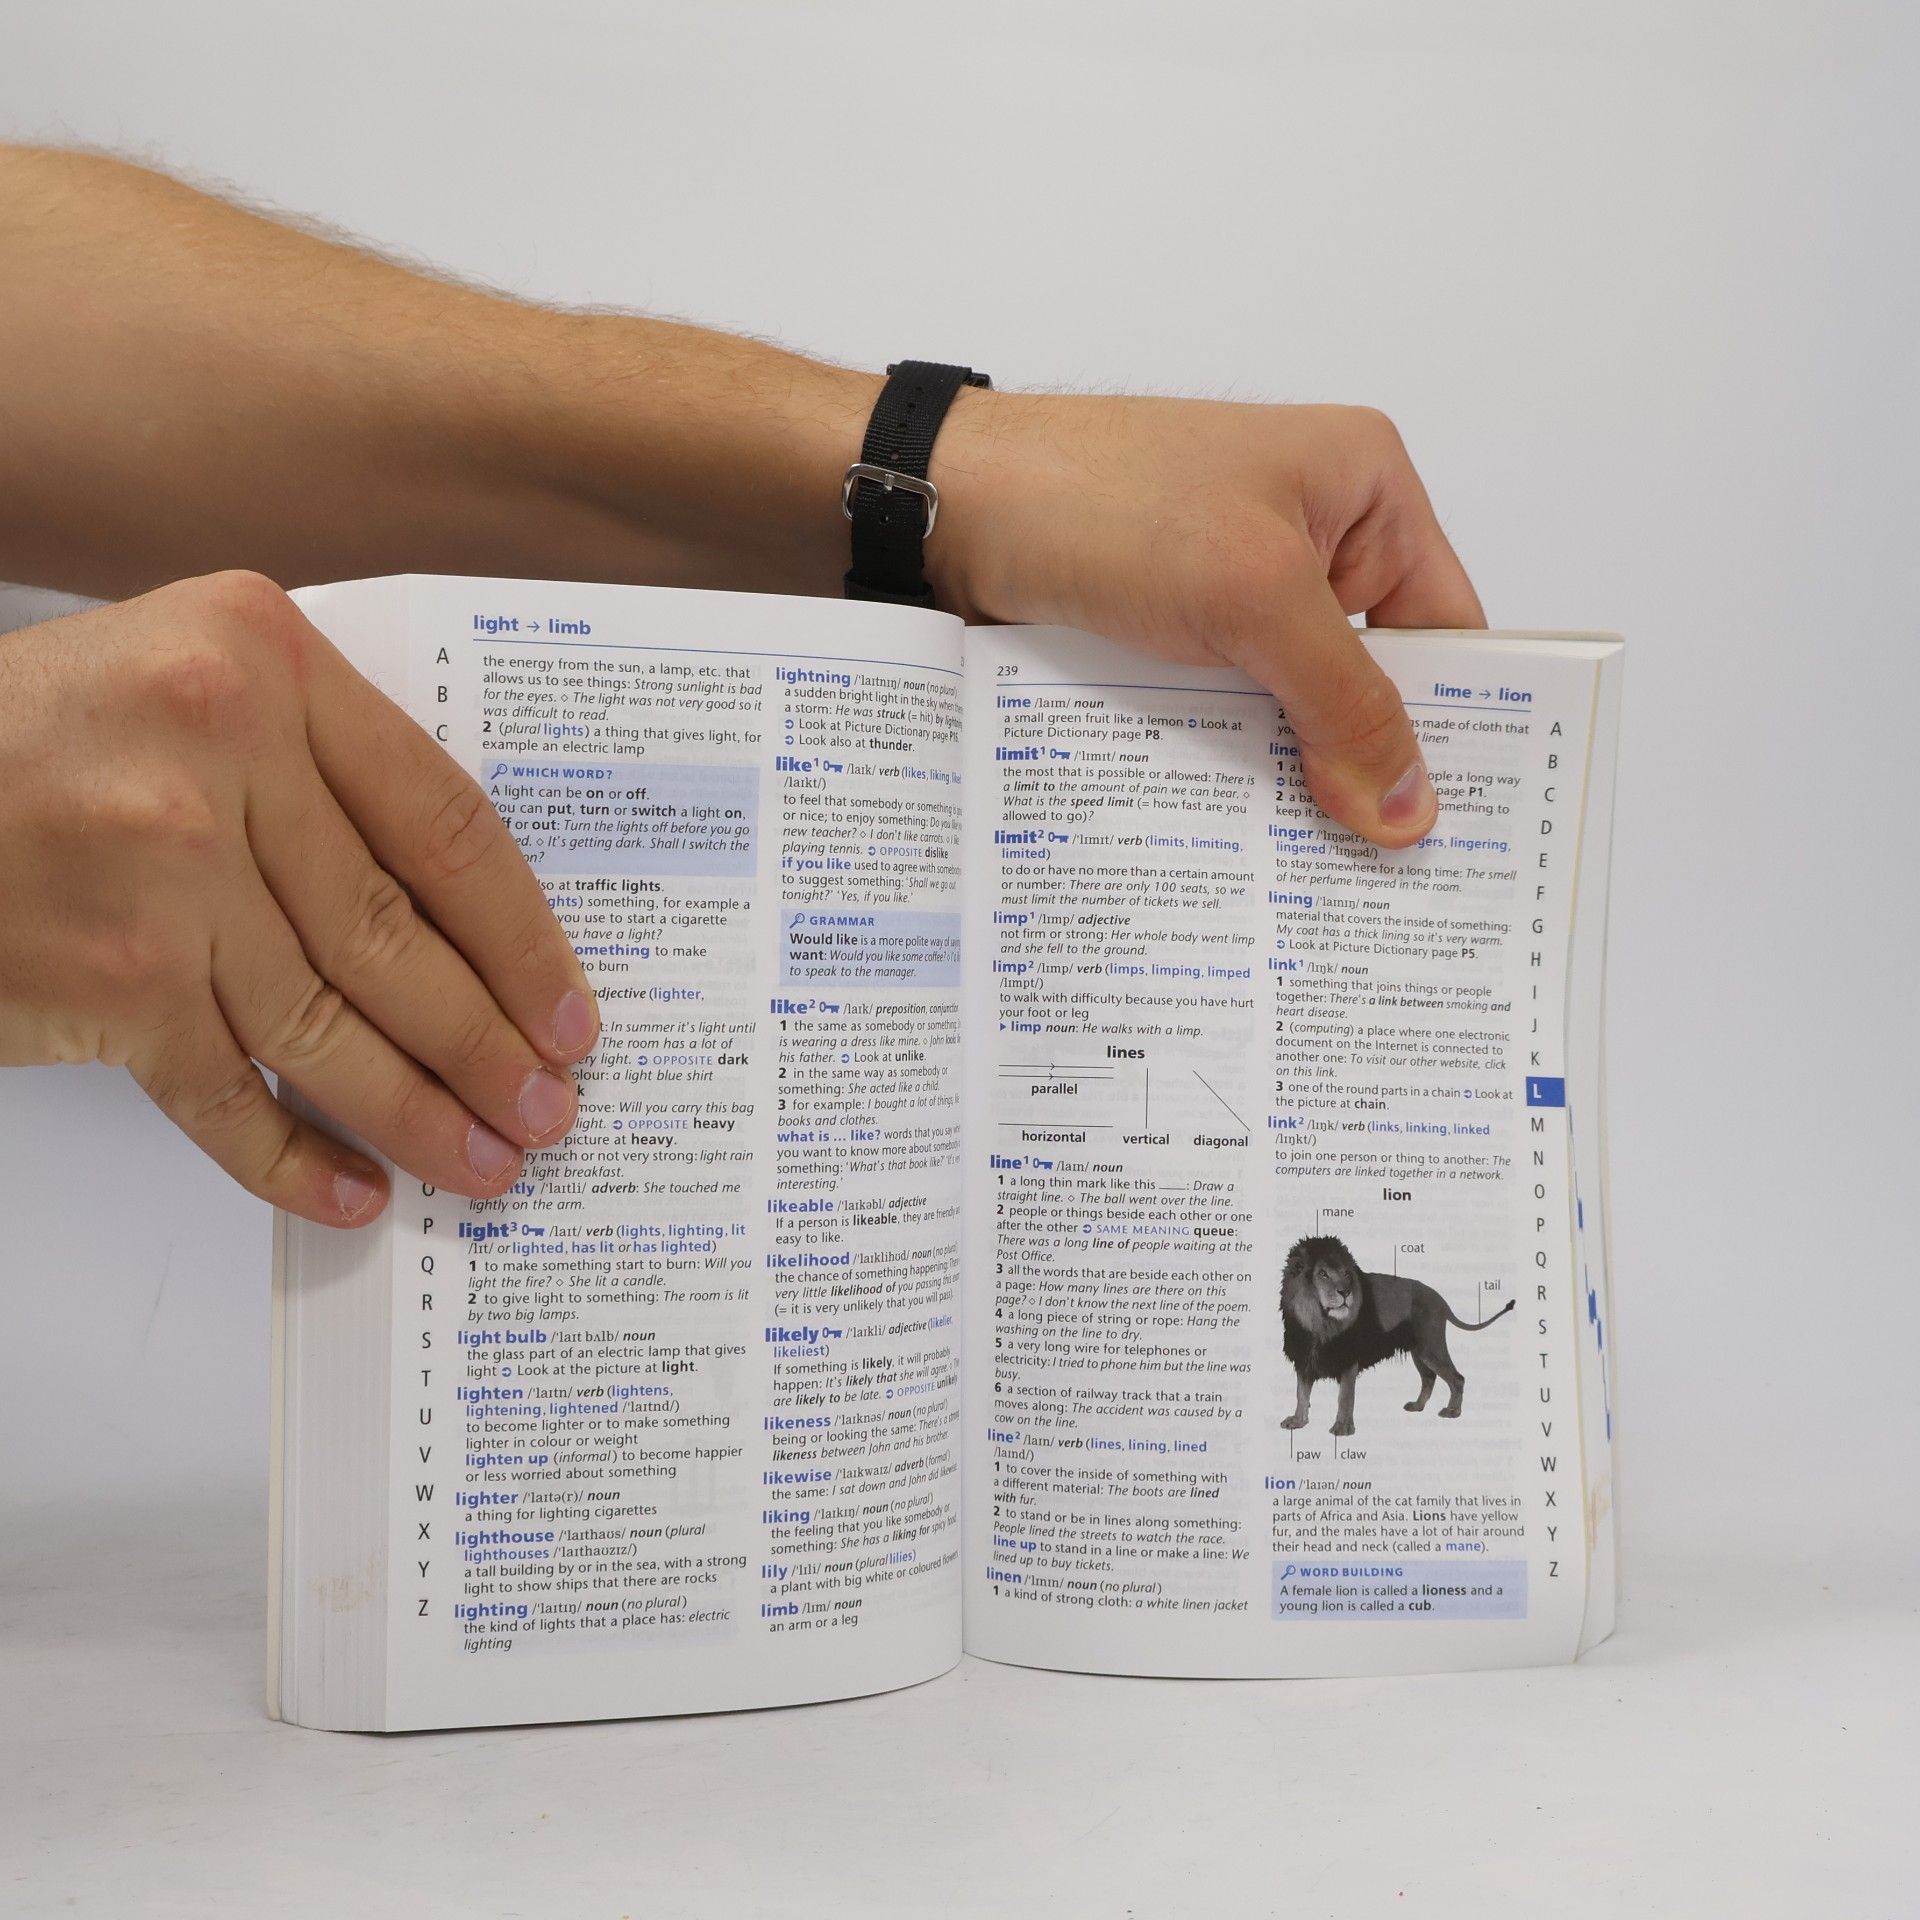 light → limb
A
B
C
O
P
Q
R
S
T
U
V
W
X
Y
Z
the energy from the sun, a lamp, etc. that
allows us to see things: Strong sunlight is bad
for the eyes. ◇ The light was not very good so it
was difficult to read.
2 (plural lights) a thing that gives light, for
example an electric lamp
WHICH WORD?
A light can be on or off.
You can put, turn or switch a light on,
or out: Turn the lights off before you go
◇ It's getting dark. Shall I switch the
on?
at traffic lights.
something, for example a
you use to start a cigarette
have a light?
to make
to burn
adjective (lighter,
In summer it's light until
The room has a lot of
light. ➲ OPPOSITE dark
a light blue shirt
move: Will you carry this bag
light. ➲ OPPOSITE heavy
picture at heavy.
much or not very strong: light rain
a light breakfast.
/ˈlaɪtli/ adverb: She touched me
lightly on the arm.
light³ /laɪt/ verb (lights, lighting, lit
/lɪt/ or lighted, has lit or has lighted)
1 to make something start to burn: Will you
light the fire? ◇ She lit a candle.
2 to give light to something: The room is lit
by two big lamps.
light bulb /ˈlaɪt bʌlb/ noun
the glass part of an electric lamp that gives
light ➲ Look at the picture at light.
lighten /ˈlaɪtn/ verb (lightens,
lightening, lightened /ˈlaɪtnd/)
to become lighter or to make something
lighter in colour or weight
lighten up (informal) to become happier
or less worried about something
lighter /ˈlaɪtə(r)/ noun
a thing for lighting cigarettes
lighthouse /ˈlaɪthaʊs/ noun (plural
lighthouses /ˈlaɪthaʊzɪz/)
a tall building by or in the sea, with a strong
light to show ships that there are rocks
lighting /ˈlaɪtɪŋ/ noun (no plural)
the kind of lights that a place has: electric
lighting
lightning /ˈlaɪtnɪŋ/ noun (no plural)
a sudden bright light in the sky when
a storm: He was struck (= hit) by
➲ Look at Picture Dictionary page
➲ Look also at thunder.
like¹ /laɪk/ verb (likes, liking,
/laɪkt/)
to feel that somebody or something
or nice; to enjoy something: Do you
new teacher? ◇ I don't like carrots. ◇ I
playing tennis. ➲ OPPOSITE dislike
if you like used to agree with
to suggest something: 'Shall we go out
tonight?' 'Yes, if you like.'
GRAMMAR
Would like is a more polite way of
want: Would you like some coffee? ◇
to speak to the manager.
like² /laɪk/ preposition,
1 the same as somebody or something:
is wearing a dress like mine. ◇ John
his father. ➲ Look at unlike.
2 in the same way as somebody or
something: She acted like a child.
3 for example: I bought a lot of things,
books and clothes.
what is ... like? words that you say
you want to know more about
something: 'What's that book like?'
interesting.'
likeable /ˈlaɪkəbl/ adjective
If a person is likeable, they are friendly
easy to like.
likelihood /ˈlaɪklihʊd/ noun (no plural)
the chance of something happening:
very little likelihood of you passing this
(= it is very unlikely that you will pass).
likely /ˈlaɪkli/ adjective (likelier,
likeliest)
If something is likely, it will probably
happen: It's likely that she will agree. ◇
are likely to be late. ➲ OPPOSITE unlikely
likeness /ˈlaɪknəs/ noun (no plural)
being or looking the same: There's a
likeness between John and his brother.
likewise /ˈlaɪkwaɪz/ adverb (formal)
the same: I sat down and John did likewise.
liking /ˈlaɪkɪŋ/ noun (no plural)
the feeling that you like somebody or
something: She has a liking for spicy food.
lily /ˈlɪli/ noun (plural lilies)
a plant with big white or coloured flowers
limb /lɪm/ noun
an arm or a leg
239
lime → lion
lime /laɪm/ noun
a small green fruit like a lemon ➲ Look at
Picture Dictionary page P8.
limit¹ /ˈlɪmɪt/ noun
the most that is possible or allowed: There is
a limit to the amount of pain we can bear. ◇
What is the speed limit (= how fast are you
allowed to go)?
limit² /ˈlɪmɪt/ verb (limits, limiting,
limited)
to do or have no more than a certain amount
or number: There are only 100 seats, so we
must limit the number of tickets we sell.
limp¹ /lɪmp/ adjective
not firm or strong: Her whole body went limp
and she fell to the ground.
limp² /lɪmp/ verb (limps, limping, limped
/lɪmpt/)
to walk with difficulty because you have hurt
your foot or leg
▶ limp noun: He walks with a limp.
lines
parallel
horizontal vertical diagonal
line¹ /laɪn/ noun
1 a long thin mark like this ____: Draw a
straight line. ◇ The ball went over the line.
2 people or things beside each other or one
after the other ➲ SAME MEANING queue:
There was a long line of people waiting at the
Post Office.
3 all the words that are beside each other on
a page: How many lines are there on this
page? ◇ I don't know the next line of the poem.
4 a long piece of string or rope: Hang the
washing on the line to dry.
5 a very long wire for telephones or
electricity: I tried to phone him but the line was
busy.
6 a section of railway track that a train
moves along: The accident was caused by a
cow on the line.
line² /laɪn/ verb (lines, lining, lined
/laɪnd/)
1 to cover the inside of something with
a different material: The boots are lined
with fur.
2 to stand or be in lines along something:
People lined the streets to watch the race.
line up to stand in a line or make a line: We
lined up to buy tickets.
linen /ˈlɪnɪn/ noun (no plural)
1 a kind of strong cloth: a white linen jacket
2 made of cloth that
linen
1 a people a long way
page P1.
2 a something to
keep it
linger /ˈlɪŋgə(r)/ lingering,
lingered /ˈlɪŋgəd/)
to stay somewhere for a long time: The smell
of her perfume lingered in the room.
lining /ˈlaɪnɪŋ/ noun
material that covers the inside of something:
My coat has a thick lining so it's very warm.
➲ Look at Picture Dictionary page P5.
link¹ /lɪŋk/ noun
1 something that joins things or people
together: There's a link between smoking and
heart disease.
2 (computing) a place where one electronic
document on the Internet is connected to
another one: To visit our other website, click
on this link.
3 one of the round parts in a chain ➲ Look at
the picture at chain.
link² /lɪŋk/ verb (links, linking, linked
/lɪŋkt/)
to join one person or thing to another: The
computers are linked together in a network.
lion
mane
coat
tail
paw claw
lion /ˈlaɪən/ noun
a large animal of the cat family that lives in
parts of Africa and Asia. Lions have yellow
fur, and the males have a lot of hair around
their head and neck (called a mane).
WORD BUILDING
A female lion is called a lioness and a
young lion is called a cub.
A
B
C
D
E
F
G
H
I
J
K
L
M
N
O
P
Q
R
S
T
U
V
W
X
Y
Z